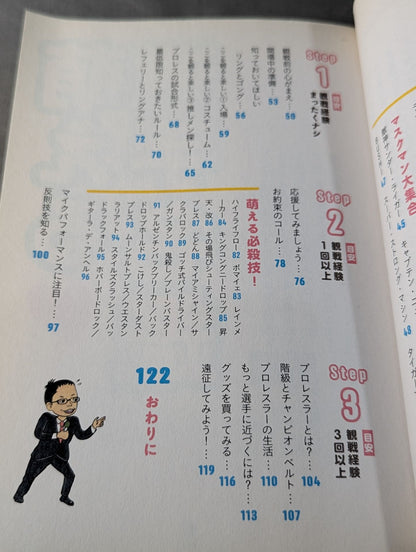 マスクマン大集合
47
48
Step
1
目安
観戦経験
まったくナシ
観戦前の心がまえ… 50
開場中の準備… 53
知っておいてほしい
リングとゴング… 56
ここを観ると楽しい①入場！… 59
ここを観ると楽しい②コスチューム… 62
ここを観ると楽しい③推しメン探し！… 65
プロレスの試合形式… 68
最低限知っておきたいルール… 70
レフェリーとリングアナ… 72
Step
2
目安
観戦経験
1回以上
応援してみましょう… 76
お約束のコール… 78
萌える必殺技！
ハイフライフロー 82 ボマイェ 83 レインメ
ーカー 84 キングコングニードロップ 85 昇
天・改 86 その場飛びシューティングスター
プレス 87 どどん 88 マイアミシャイン／サ
クラバロック 89 ゴッチ式パイルドライバー
／ガンスタン 90 鬼殺し／ブレーンバスター
91 アルゼンチンバックブリーカー／バック
ドロップホールド 92 こけし／スターダスト
プレス 93 ムーンサルトプレス／ウエスタン
ラリアット 94 スタイルズクラッシュ／バッ
ドラックフォール 95 ホバーボードロック／
ギターラ・デ・アンヘル 96
マイクパフォーマンスに注目！… 97
反則技を知る… 100
Step
3
目安
観戦経験
3回以上
プロレスラーとは？… 104
階級とチャンピオンベルト… 107
プロレスラーの生活… 110
もっと選手に近づくには？… 113
グッズを買ってみる… 116
遠征してみよう！… 119
122 おわりに